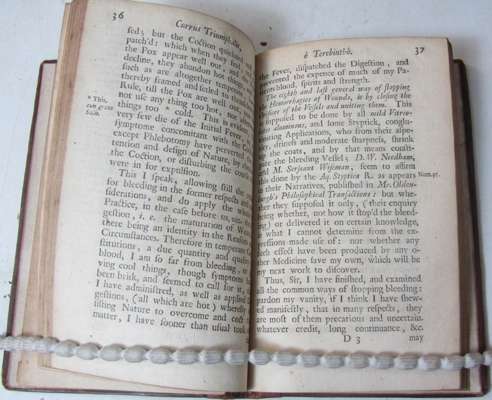 36
Currus Triumphalis,
fed; but the Coction quickned
patch'd: which when they feel and
the Pox appear well out, and not
decline, they abandon hot things
such as are altogether temperate
thereby framed and setled into this
Rule, till the Pox are well out,
not use any thing too hot, nor any
things too cold. This is evident
very few die of the Initial Fever
symptome concomitant with the
except Phlebotomy have prevented
tention and design of Nature, by
the Coction, or disturbing the course
were in for expulsion.
* This,
This I speak, allowing still the
for bleeding in the former respects and
siderations, and do apply the whole
Practice, in the case before us, unto
gestion, i. e. the maturation of
there being an identity in the
Circumstances. Therefore in temperate
stitutions, a due quantity and quality
blood, I am so far from bleeding, or
ving cool things, though symptoms
been brisk, and seemed to call for it,
I have administred, as well as applied
gestions, (all which are hot) whereby
sisting Nature to overcome and
matter, I have sooner than usual took
è Terebinthò.
37
the Fever, dispatched the Digestion, and
prevented the expence of much of my Pa-
tients blood, spirits and strength.
The eighth and last general way of stopping
Hæmorrhagies of Wounds, is by closing the
of the Vessels and uniting them. This
supposed to be done by all mild Vitrio-
aluminous, and some Styptick, conglu-
tinating Applications, who from their aspe-
driness and moderate sharpness, shrink
the coats, and by that means coale-
the bleeding Vessel; D. W. Needham,
and M. Serjeant Wiseman, seem to affirm
this done by the Aq. Styptica R. as appears
Num. 91.
in their Narratives, published in Mr. Olden-
burgh's Philosophical Transactions: but whe-
ther they supposed it only, (their enquiry
being whether, not how it stop'd the bleed-
ing) or delivered it on certain knowledge,
what I cannot determine from the ex-
pressions made use of: nor whether any
such effect have been produced by any o-
ther Medicine save my own, which will be
my next work to discover.
Thus, Sir, I have finished, and examined
all the common ways of stopping bleeding:
pardon my vanity, if I think I have shew-
ed manifestly, that in many respects, they
are most of them precarious and uncertain.
whatever credit, long continuance, &c.
D 3
may